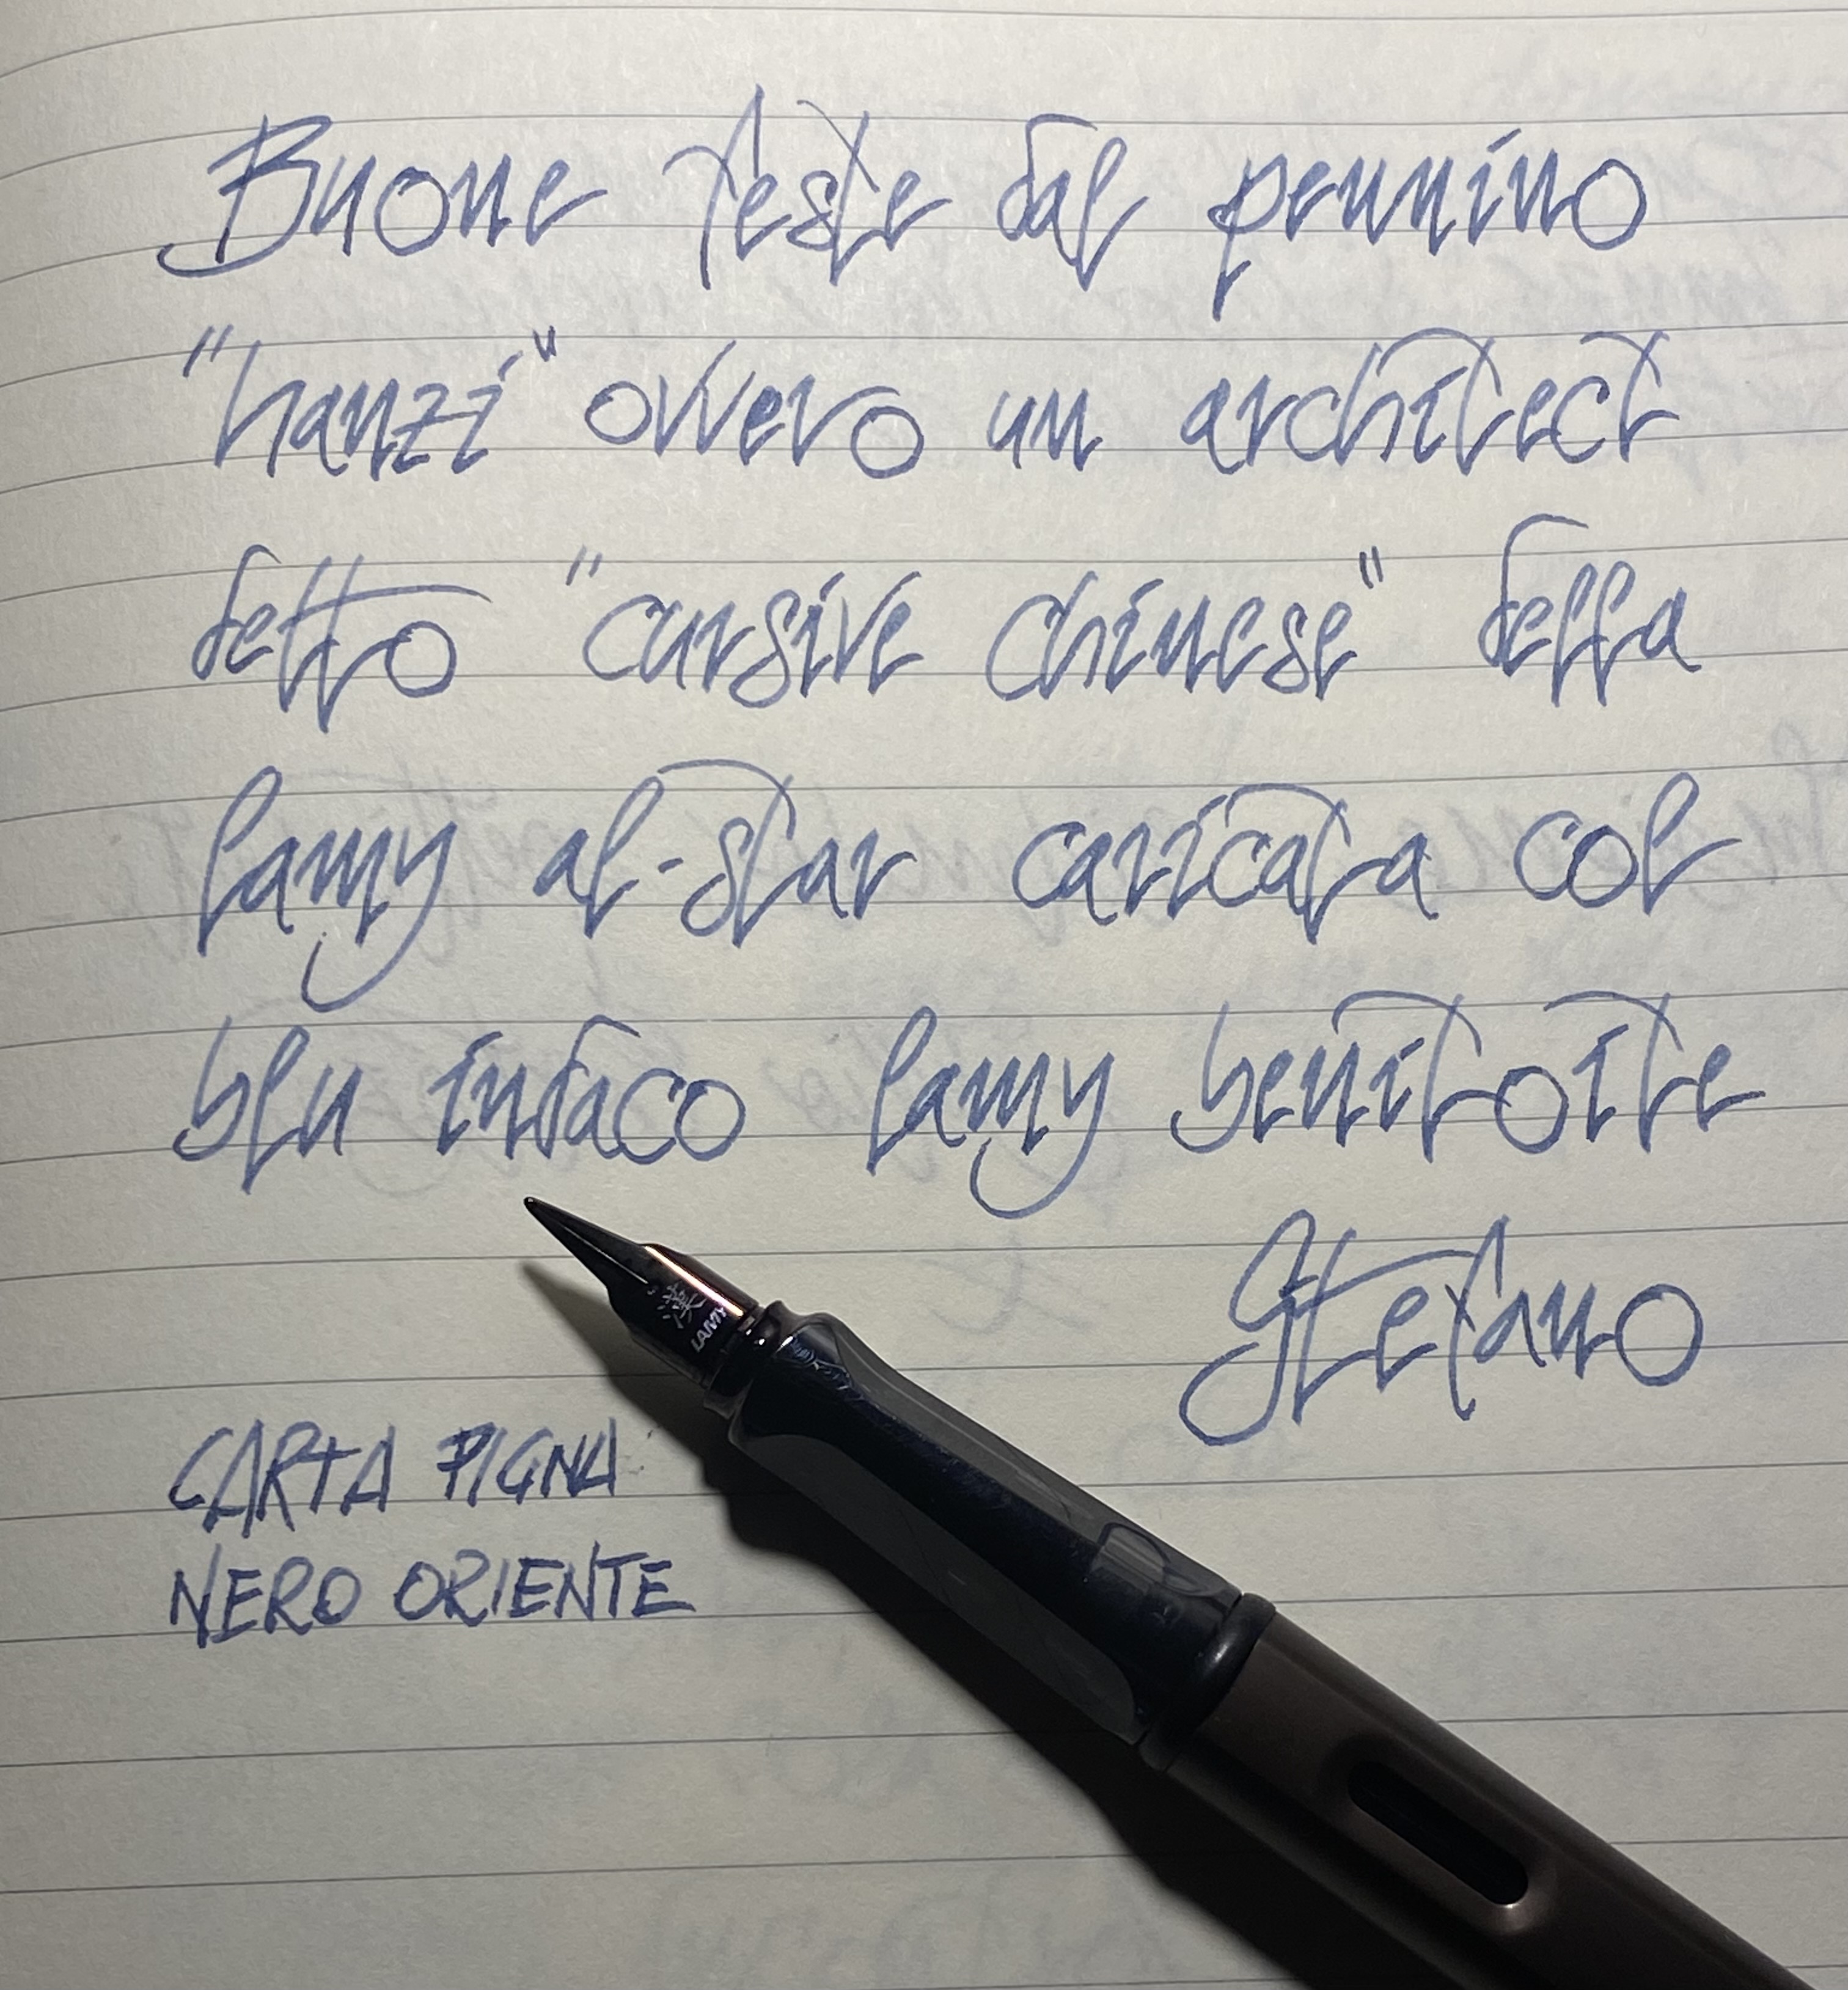 Buone feste dal pennino
"hanzi" ovvero un architect
detto "cursive chinese" della
lamy al-star caricata col
blu indaco lamy benitoite
Stefano
漢
LAMY
CARTA PIGNA
NERO ORIENTE